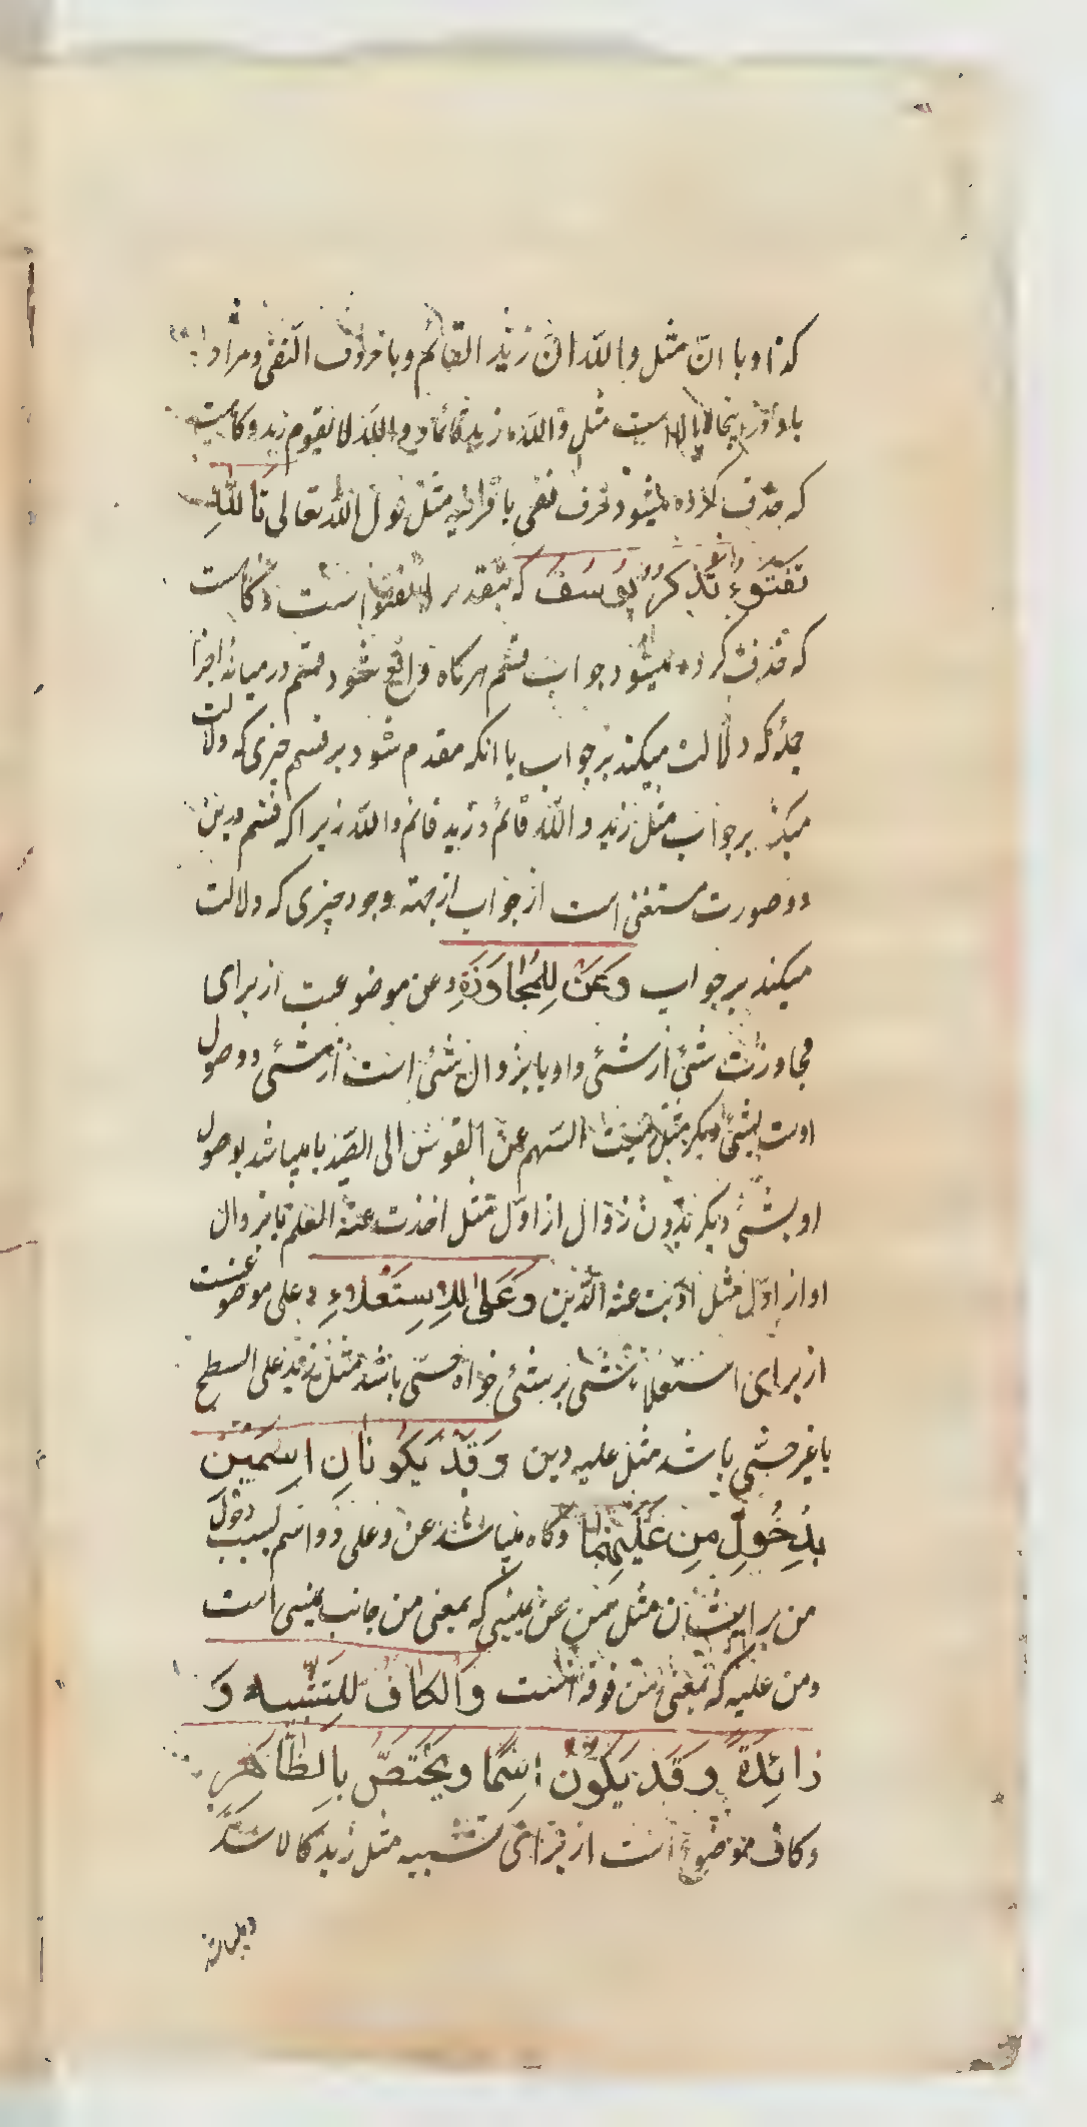 کذا و با انّ مثل والله انّ زید القائم و با حروف النفی و مراد
باو در اینجا ما یا لا است مثل والله ما زید قائما و والله لا یقوم زید و کاهست
که حذف کرده میشود حرف نفی با قراین مثل قول الله تعالی تَاللّهِ
تَفْتَؤُ تَذْکُرُ یُوسُفَ که بتقدیر لا تفتؤا است و کاهست
که حذف کرده میشود جواب قسم هرکاه واقع شود قسم در میانهٔ اجزا
جملهٔ که دلالت میکند بر جواب یا انکه مقدم شود بر قسم چیزی که دلالت
میکند بر جواب مثل زید والله قائم و زید قائم والله زیرا که قسم درین
دو صورت مستغنی است از جواب از جهة وجود چیزی که دلالت
میکند بر جواب وَعَنْ لِلْمُجاوَزَةِ و عن موضوعست از برای
مجاوزت شئ از شئی و او یا بزوال شئ است از شئی و وصول
اوست بشئ دیکر مثل رمیت السّهم عن القوس الی الصّید یا میباشد بوصول
او بشئی دیکر بدون زوال از اوّل مثل اخذت عنه العلم یا بزوال
او از اوّل مثل ادّیت عنه الدّین وَعَلی لِلْاِسْتِعْلاءِ و علی موضوعست
از برای استعلاء شئی بر شئی خواه حسّی باشد مثل زید علی السطح
یا غیر حسّی باشد مثل علیه دین وَقَدْ یَکُونانِ اسْمَیْنِ
بِدُخُولِ مِنْ عَلَیْهِما و کاه میباشند عن و علی دو اسم بسبب دخول
من بر ایشان مثل من عن یمینی که بمعنی من جانب یمینی است
و من علیه که بمعنی من فوقه است وَالْکافُ لِلتَّشْبیهِ وَ
زائِدَةً وَقَدْ یَکُونُ اسْمًا وَیَخْتَصُّ بِالظّاهِرِ
و کاف موضوع است از برای تشبیه مثل زید کالاسد
و میباشد